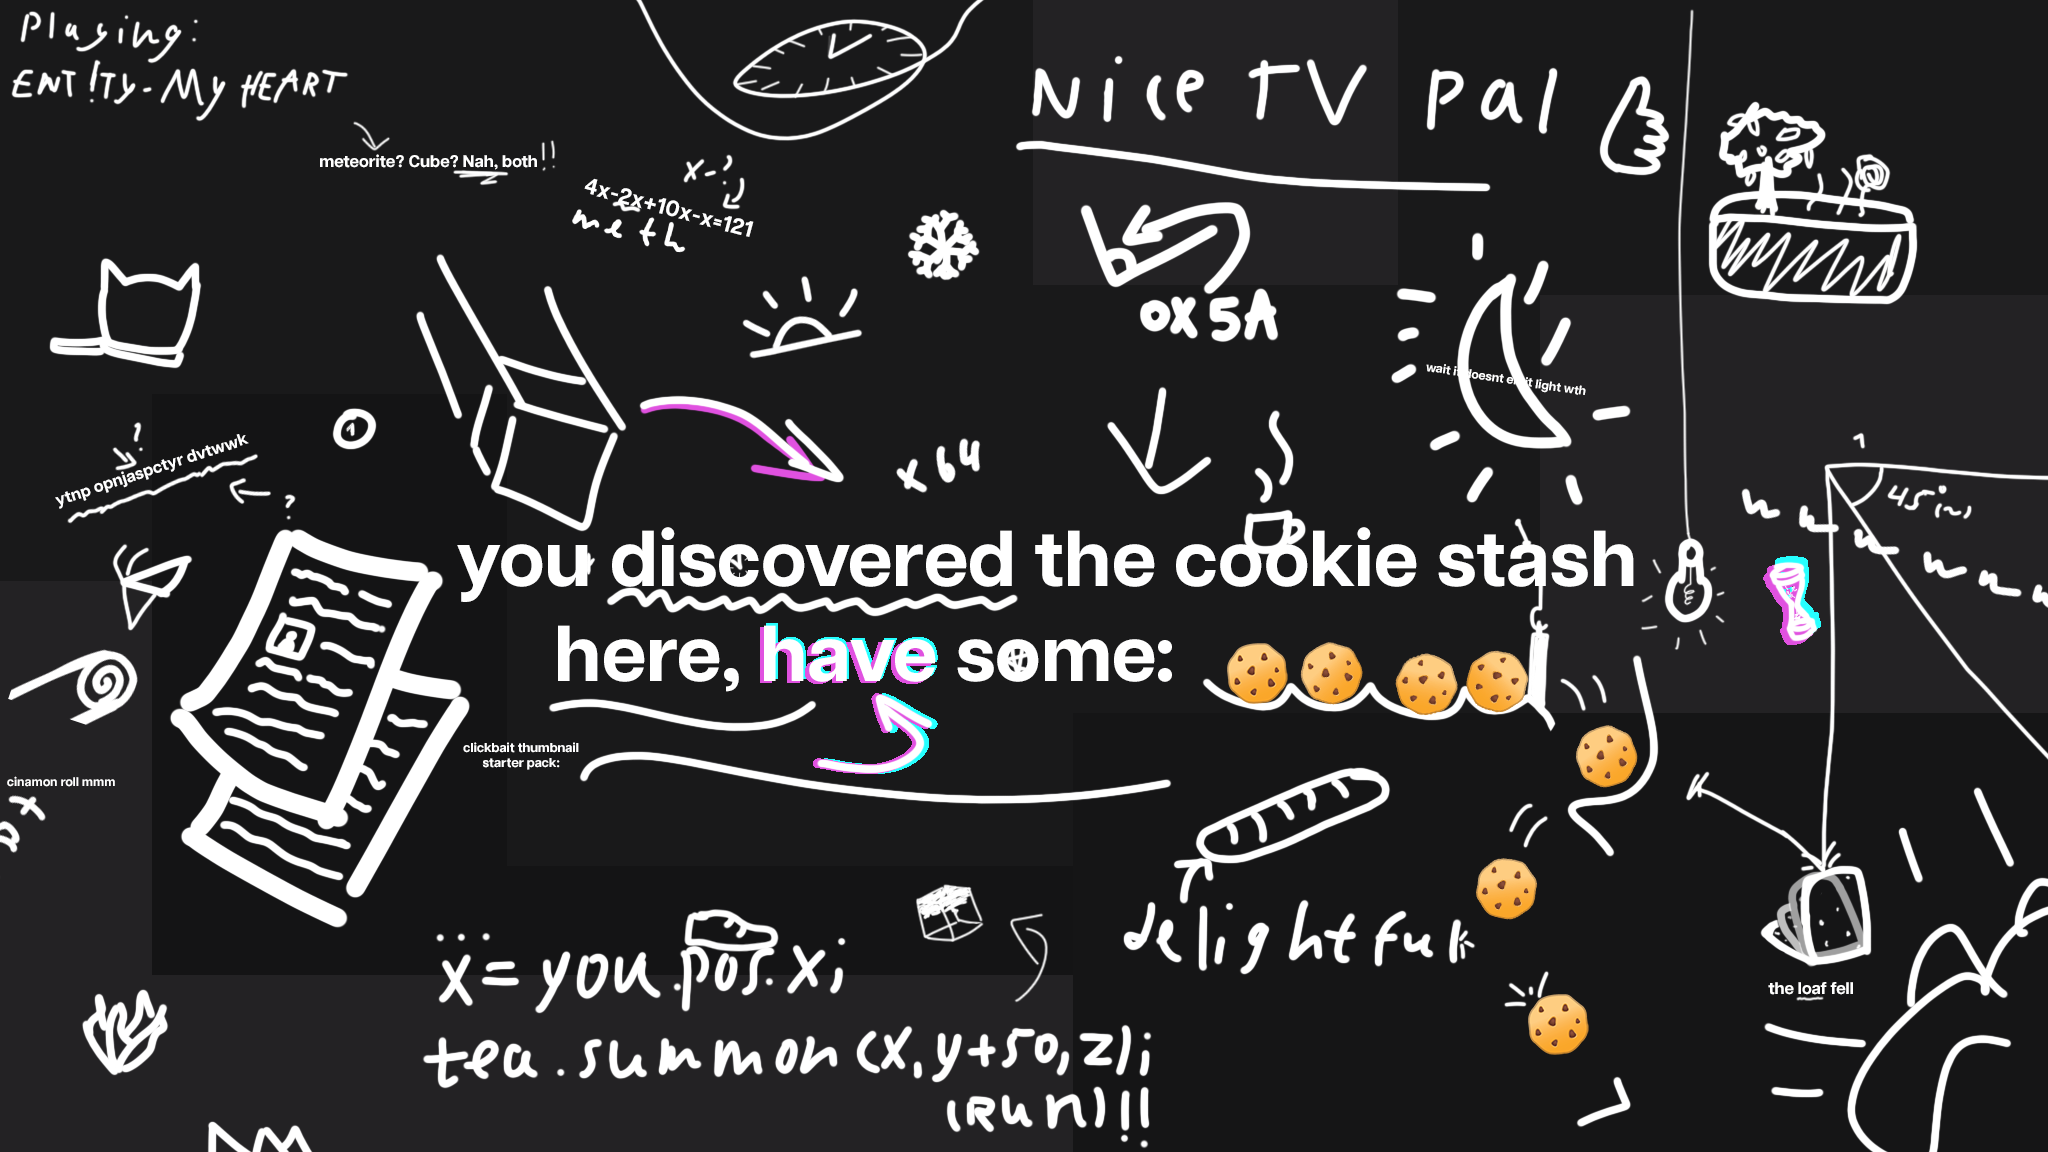 Playing:
ENT!TY - My HEART
Nice TV pal
meteorite? Cube? Nah, both!!
x-?
4x-2x+10x-x=121
meth
0x5A
wait it doesnt emit light wth
1
?
ytnp opnjaspctyr dvtwwk
?
x64
1
45(~)
you discovered the cookie stash
here, have some:
clickbait thumbnail
starter pack:
cinamon roll mmm
delightful
x=you.pos.x;
tea.summon(x,y+50,z);
(Run)!!
the loaf fell